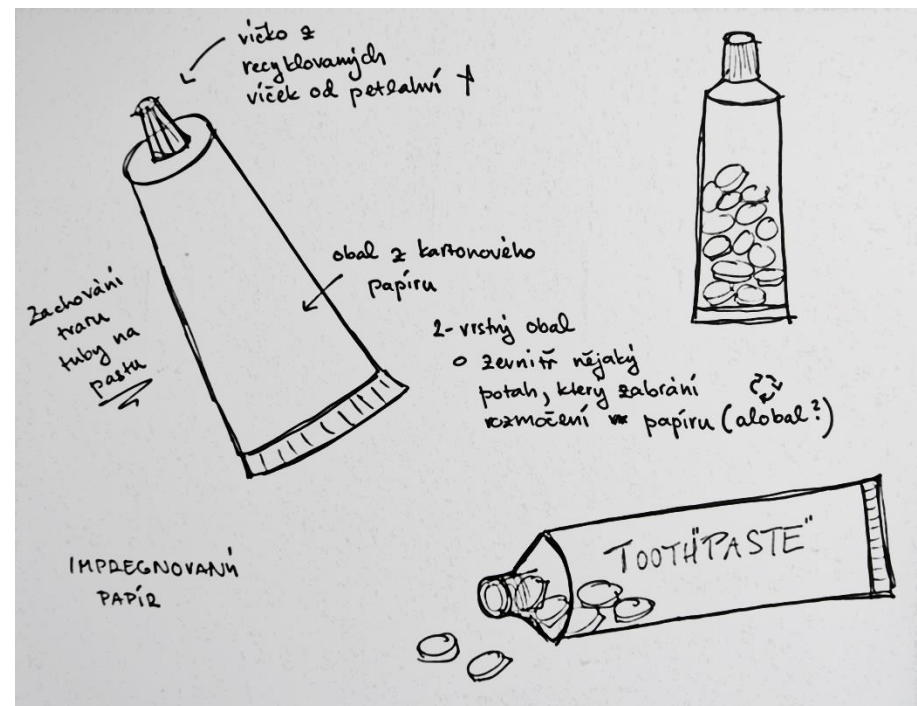 víčko z
recyklovaných
víček od petlahví
obal z kartonového
papíru
Zachování
tvaru
tuby na
pastu
2-vrstvý obal
zevnitř nějaký
potah, který zabrání
rozmočení papíru (alobal?)
IMPREGNOVANÝ
PAPÍR
TOOTH"PASTE"